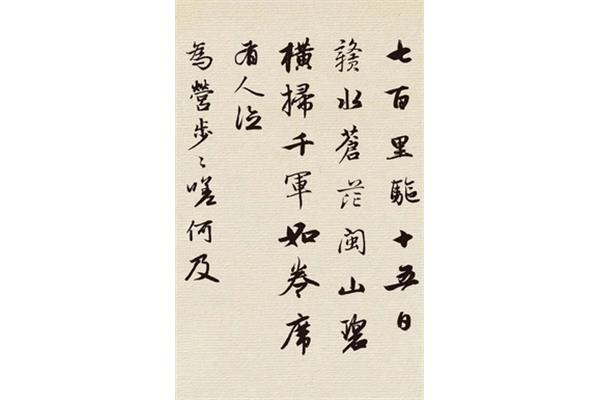 七百里驅十五日
贛水蒼茫閩山碧
橫掃千軍如卷席
有人泣
為營步々嗟何及